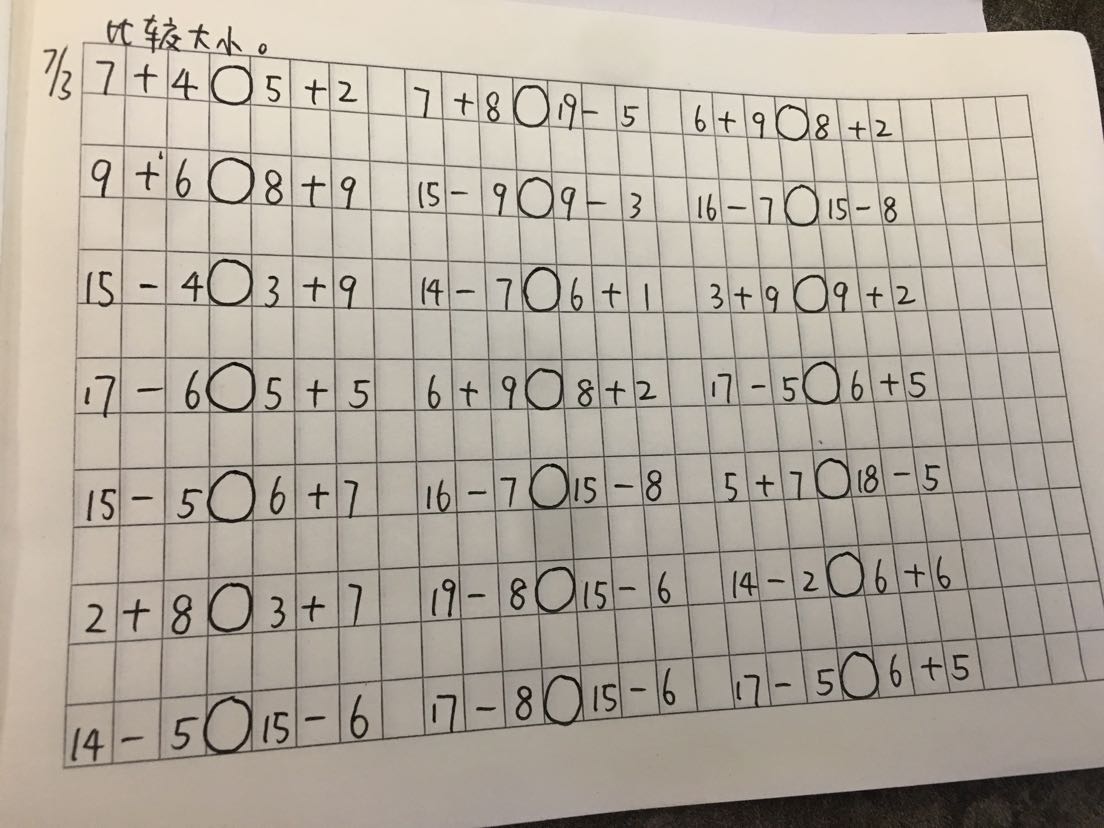 比较大小。
7/3 7+4○5+2 7+8○19-5 6+9○8+2
9+6○8+9 15-9○9-3 16-7○15-8
15-4○3+9 14-7○6+1 3+9○9+2
17-6○5+5 6+9○8+2 17-5○6+5
15-5○6+7 16-7○15-8 5+7○18-5
2+8○3+7 19-8○15-6 14-2○6+6
14-5○15-6 17-8○15-6 17-5○6+5